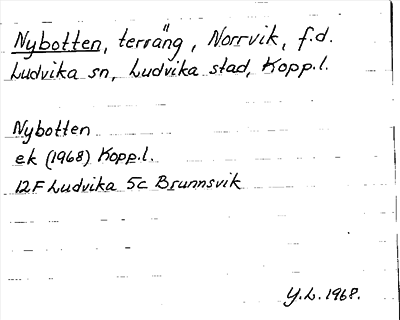 Nybotten, terräng, Norrvik, f.d.
Ludvika sn, Ludvika stad, Kopp.l.
Nybotten
ek (1968) Kopp.l.
12F Ludvika 5c Brunnsvik
Y.L. 1968.